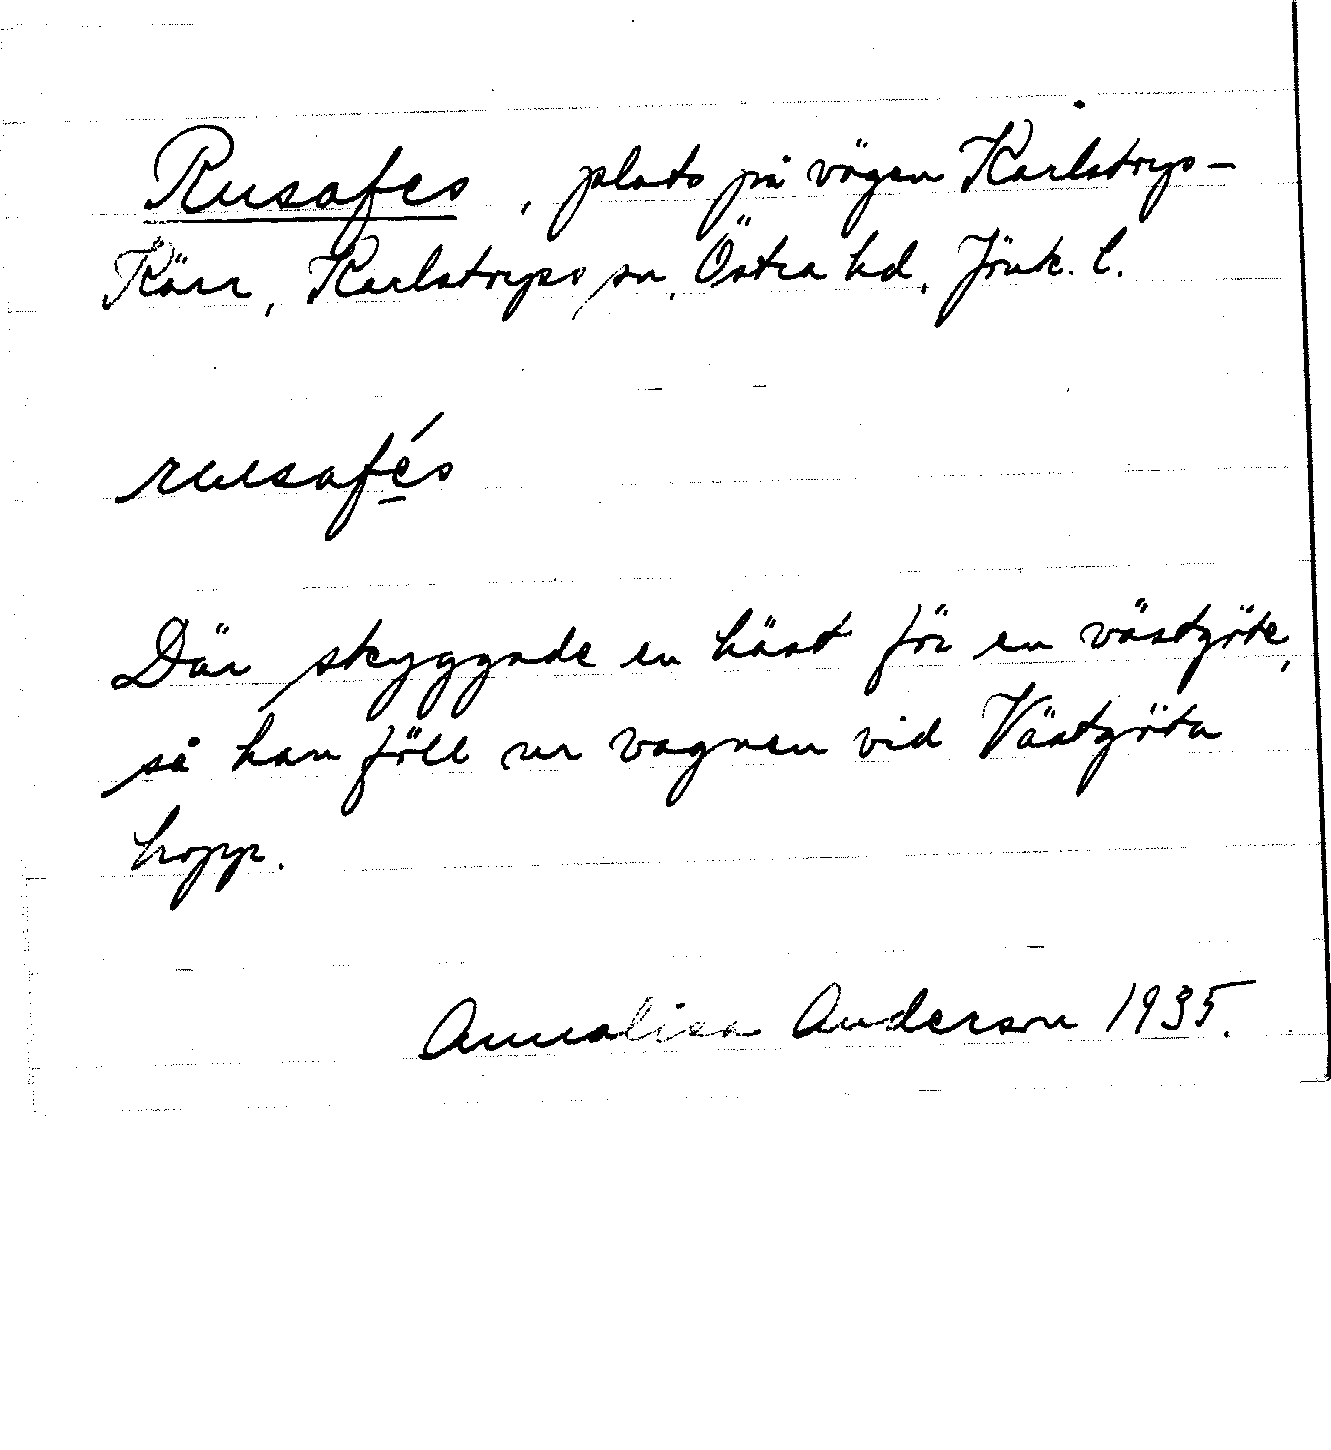 Rusafes, plats på vägen Karlstryps-
Kärr, Karlstryps sn, Östra hd, Jönk. l.
rusafés
Där skyggnde en häst för en västgöte,
så han föll ur vagnen vid Västgöta
hopp.
Annalisa Anderson 1935.